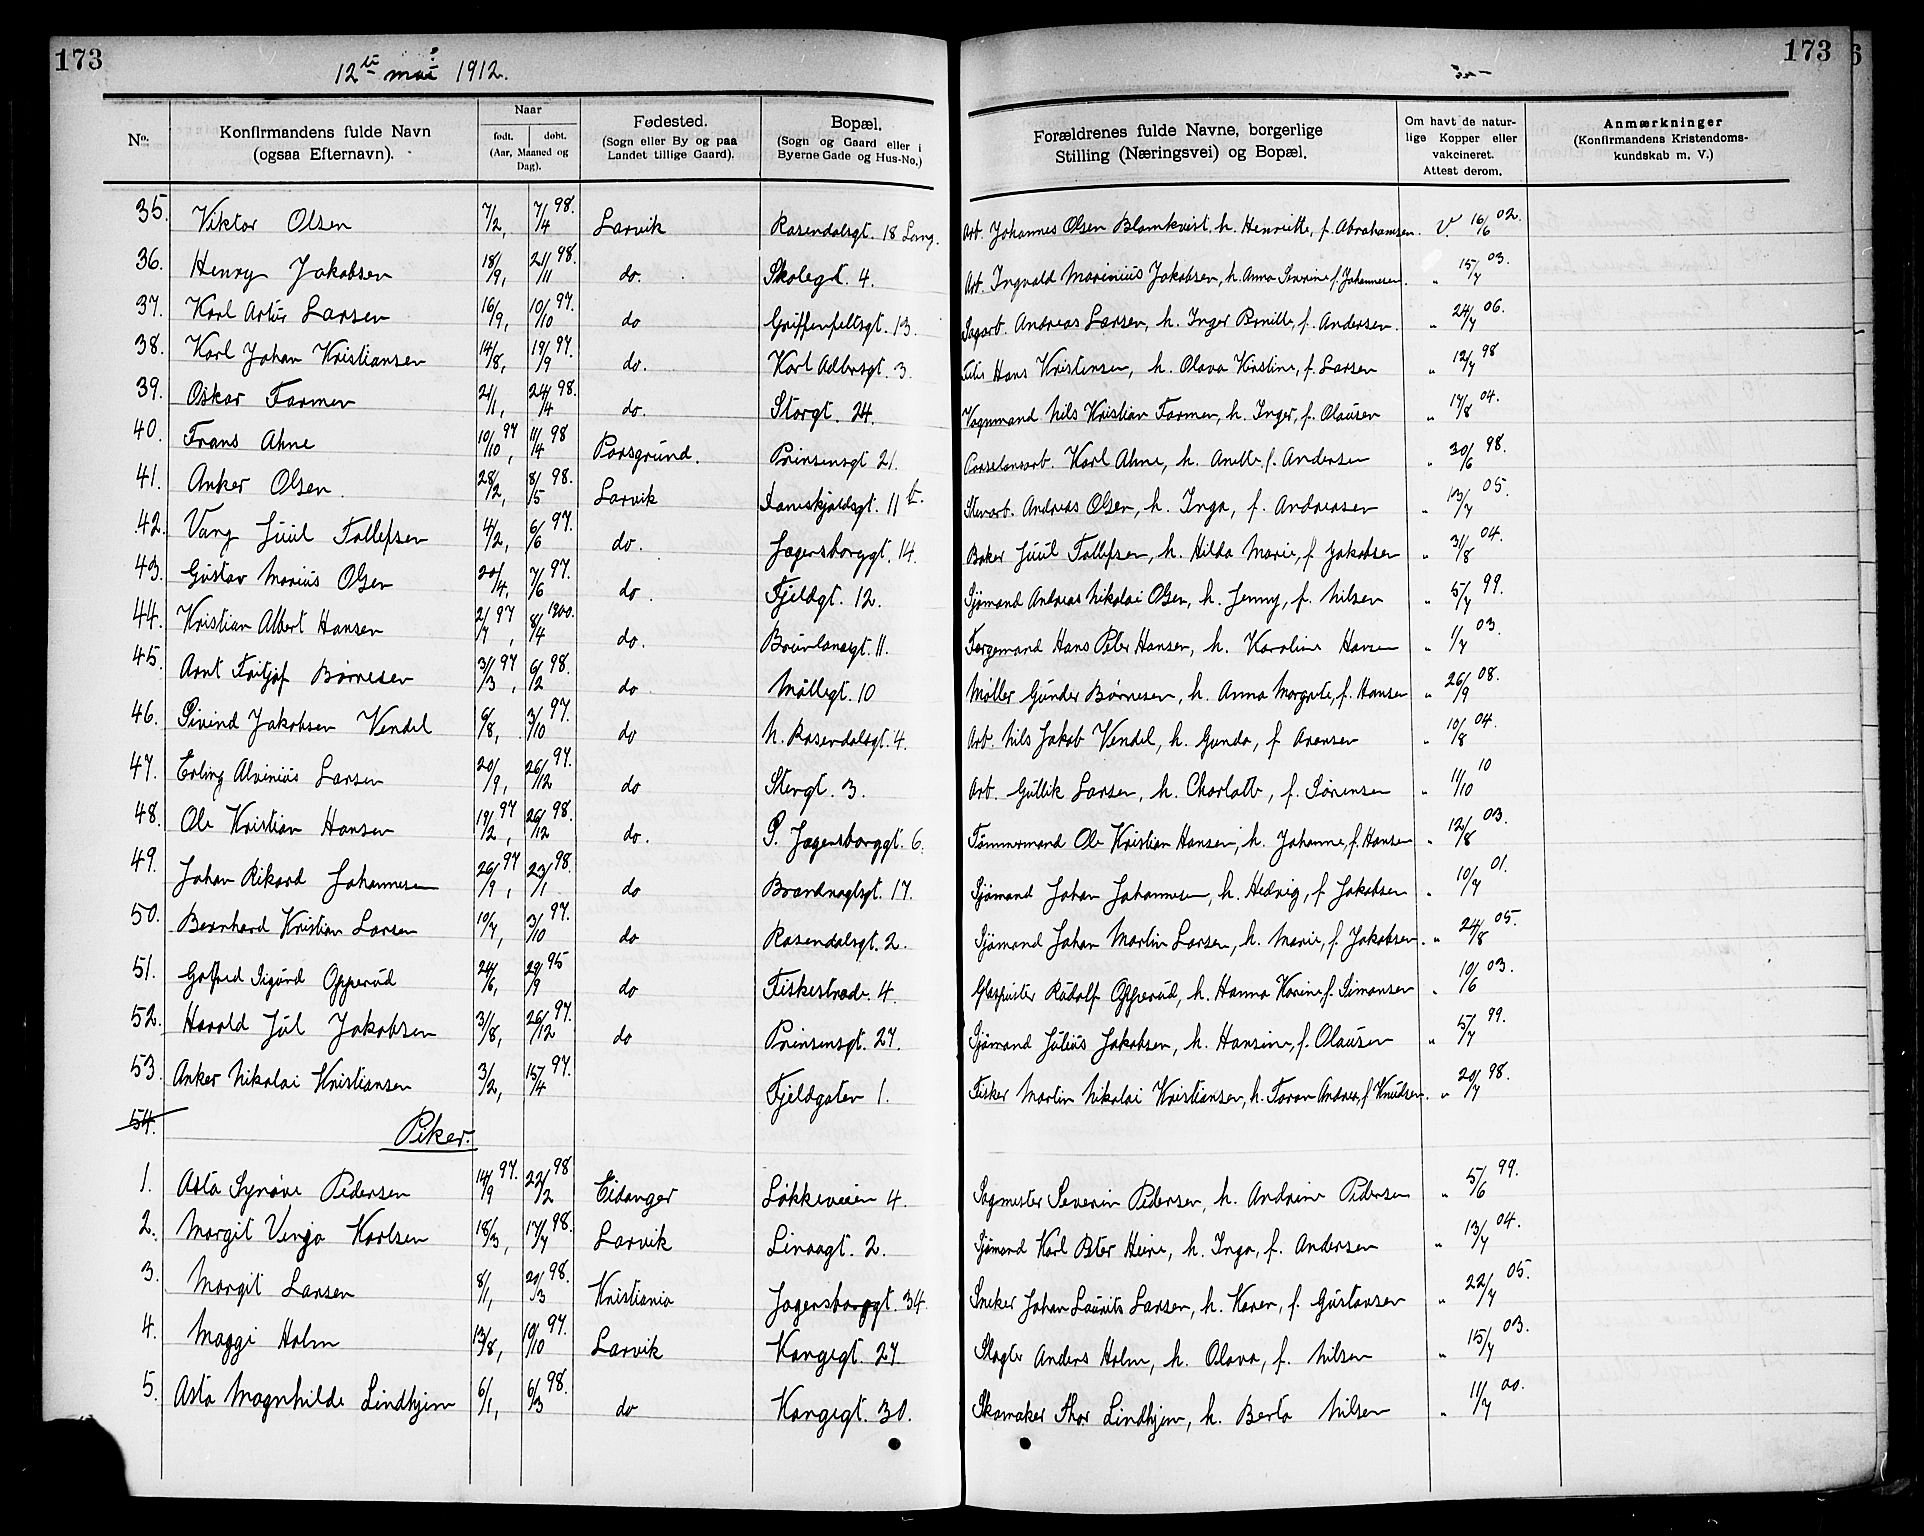 173
12te mai 1912.
173
No.
Konfirmandens fulde Navn (ogsaa Efternavn).
Naar
født. døbt.
(Aar, Maaned og Dag).
Fødested.
(Sogn eller By og paa Landet tillige Gaard).
Bopæl.
(Sogn og Gaard eller i Byerne Gade og Hus-No.)
Forældrenes fulde Navne, borgerlige Stilling (Næringsvei) og Bopæl.
Om havt de naturlige Kopper eller vakcineret. Attest derom.
Anmærkninger
(Konfirmandens Kristendomskundskab m. V.)
35. Viktor Olsen 7/2, 7/4 98. Larvik Rosendalsgt. 18 Lang. Arb. Johannes Olsen Blomkvist, h. Henriette, f. Abrahamsen. V. 16/6 02.
36. Henry Jakobsen 18/9, 21/11 98. do. Skolegt. 4. Arb. Ingvald Marinius Jakobsen, h. Anna Severine f. Johannesen. " 15/7 03.
37. Karl Artur Larsen 16/9, 10/10 97. do Griffenfeltsgt. 13 Sagarb. Andreas Larsen, h. Inger Bernille, f. Andersen. " 24/7 06.
38. Karl Johan Kristiansen 14/8, 19/9 97. do. Karl Adlersgt. 3. Hans Kristensen, h. Olava Kirstine, f. Larsen " 12/7 98
39. Oskar Farmen 21/1, 24/4 98. do. Storgt. 24. Vognmand Nils Kristian Farmen, h. Inger, f. Olausen " 17/8 04.
40. Frans Ahne 10/10 97, 11/4 98 Porsgrund. Prinsensgt 21. Porselensarb. Karl Ahne, h. Anette, f. Andersen " 30/6 98.
41. Anker Olsen. 28/2, 8/5 98. Larvik Daneskjoldsgt. 11 b. Stenarb. Andreas Olsen, h. Inga, f. Andreasen " 13/7 05.
42. Varg Juul Tollefsen 4/2, 6/6 97. do. Jegersborggt. 14. Baker Juul Tollefsen, h. Hilda Marie, f. Jakobsen " 31/8 04.
43. Gustav Marius Olsen 20/4, 7/6 97. do. Fjeldgt. 12. Sjømand Andreas Nikolai Olsen, h. Jenny, f. Nilsen " 5/7 99.
44. Kristian Albert Hansen 2/7 97, 8/4 1900. do. Brunlanesgt. 11. Fergemand Hans Peter Hansen, h. Karoline Hansen " 1/7 03.
45. Arnt Fritjof Børresen 31/3 97, 6/12 98. do Møllegt. 10 Møller Gunder Børresen, h. Anna Margrete, f. Hansen " 26/9 08.
46. Eivind Jakobsen Vendel 6/8, 3/10 97. do N. Rosendalsgt. 4. Arb. Nils Jakob Vendel, h. Gunda, f. Aronsen " 10/8 04.
47. Erling Alvinius Larsen 20/9, 26/12 97. do Stengt. 3. Arb. Gullik Larsen, h. Charlotte, f. Sørensen " 11/10 10
48. Ole Kristian Hansen 19/2 97, 26/12 98. do. Ø. Jegersborggt. 6. Tømmermand Ole Kristian Hansen, h. Johanne, f. Hansen " 12/8 03.
49. Johan Rikard Johannesen 26/9 97, 23/1 98. do Brandvagtsgt. 17. Sjømand Johan Johannesen, h. Hedvig, f. Jakobsen " 10/7 01.
50. Bernhard Kristian Larsen 10/7, 3/10 97. do Rosendalsgt. 2. Sjømand Johan Martin Larsen, h. Marie, f. Jakobsen. " 24/8 05.
51. Gotfred Sigurd Opperud 24/6, 29/9 95 do Fiskestræde. 4. Glaspuster Rudolf Opperud, h. Hanna Karine f. Simonsen " 10/6 03.
52. Harald Jul Jakobsen 31/8, 26/12 97. do Prinsensgt. 27. Sjømand Julius Jakobsen, h. Hansine, f. Olausen " 5/7 99.
53. Anker Nikolai Kristiansen 3/2, 15/4 97. Fjeldgaten 1. Fisker Martin Nikolai Kristiansen, h. Andrea, f. Knudsen. " 20/7 98.
54.
Piker.
1. Asta Synøve Pedersen 14/9 97. 22/2 98 Eidanger Løkkeveien 4. Sagmester Severin Pedersen, h. Andrine Pedersen " 5/6 99.
2. Margit Verga Karlsen 18/3, 17/7 98. Larvik Linaagt. 2. Sjømand Karl Peter Heire, h. Inga, f. Andersen " 13/7 04.
3. Margit Larsen 8/1, 20/3 98. Kristiania Jegersborggt. 34. Sneker Johan Laurits Larsen, h. Karen, f. Gustavsen " 22/7 05.
4. Maggi Holm 13/8, 10/10 97. Larvik Kongegt. 27 Slagter Anders Holm, h. Olava, f. Nilsen " 15/7 03.
5. Asta Magnhilde Lindhjem 6/1, 6/3 98. do Kongegt. 30. Skomaker Thor Lindhjem, h. Berta Nilsen " 11/7 00.